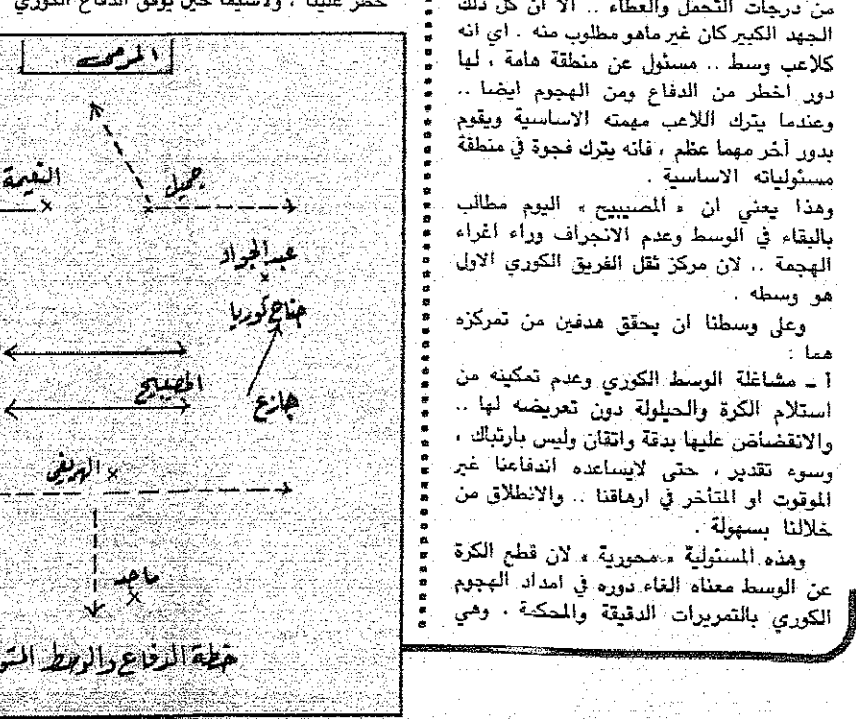 من درجات التحمل والعطاء .. الا ان كل ذلك
الجهد الكبير كان غير ماهو مطلوب منه . اي انه
كلاعب وسط .. مسئول عن منطقة هامة ، لها
دور اخطر من الدفاع ومن الهجوم ايضا ..
وعندما يترك اللاعب مهمته الاساسية ويقوم
بدور آخر مهما عظم ، فانه يترك فجوة في منطقة
مسئولياته الاساسية .
وهذا يعني ان « المصيبيح » اليوم مطالب
بالبقاء في الوسط وعدم الانجراف وراء اغراء
الهجمة .. لان مركز ثقل الفريق الكوري الاول
هو وسطه .
وعلى وسطنا ان يحقق هدفين من تمركزه
هما :
أ ـ مشاغلة الوسط الكوري وعدم تمكينه من
استلام الكرة والحيلولة دون تعريضه لها ..
والانقضاض عليها بدقة واتقان وليس بارتباك ،
وسوء تقدير ، حتى لايساعده اندفاعنا غير
الموقوت او المتأخر في ارهاقنا .. والانطلاق من
خلالنا بسهولة .
وهذه المسئولية « محورية » لان قطع الكرة
عن الوسط معناه الغاء دوره في امداد الهجوم
الكوري بالتمريرات الدقيقة والمحكمة . وهي
خطر علينا ، ولاسيما حين يوفق الدفاع الكوري
المرمى
النعيمة
جميل
عبدالجواد
جناح كوريا
المصيبيح
جازع
الهريفي
ماجد
خطة الدفاع والوسط